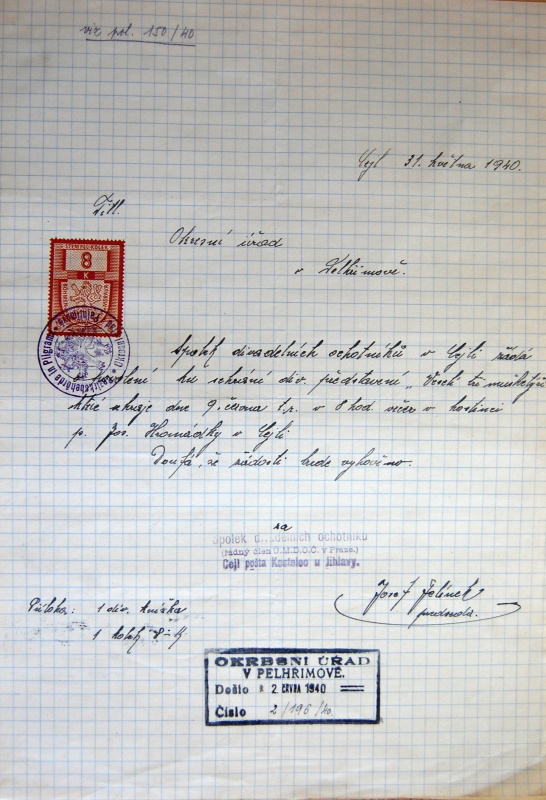 viz pol. 150/40
Cejl 31. května 1940.
Titl.
Okresní úřad
v Pelhřimově.
STEMPELMARKE
8
K
Bezirksbehörde in Pilgrams
Spolek divadelních ochotníků v Cejli žádá
o povolení ku sehrání div. představení „Veselí tři mušketýři
které sehraje dne 9. června t.r. v 8 hod. večer v hostinci
p. Jos. Hromádky v Cejli
Doufá, že žádosti bude vyhověno.
za
Spolek divadelních ochotníků
(řádný člen Ú.M.D.O.Č. v Praze.)
Cejl pošta Kostelec u Jihlavy.
Příloha: 1 div. knížka
1 kolek 8-K
Josef Jelínek
předseda.
OKRESNÍ ÚŘAD
V PELHŘIMOVĚ.
Došlo 2. ČRVNA 1940
Číslo 2/196/40.